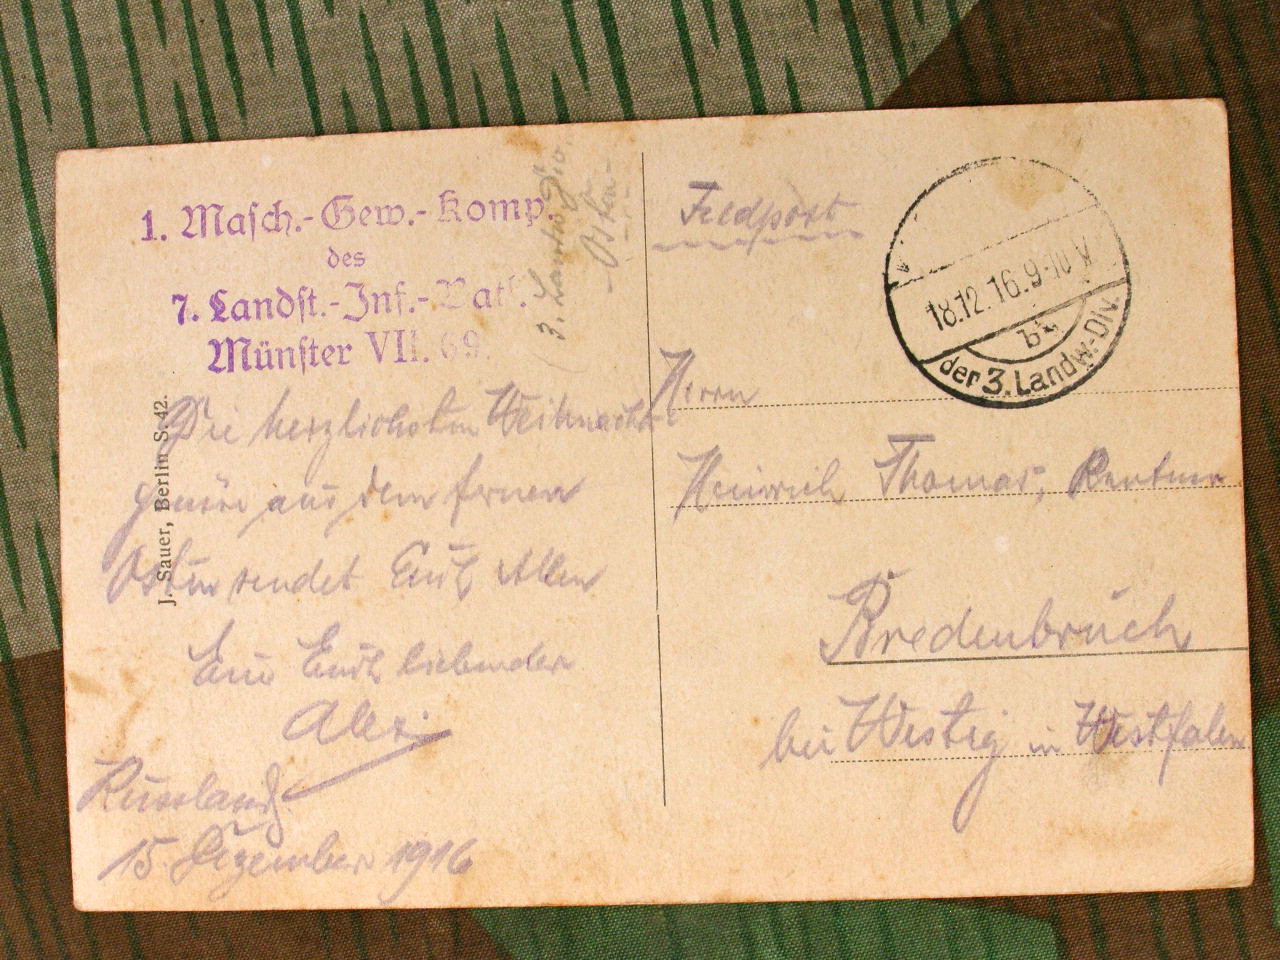 1. Masch.-Gew.-Komp.
des
7. Landst.-Inf.-Batl.
Münster VII. 69.
3. Landw. Div.
- Osten -
J. Sauer, Berlin S. 42.
Die herzlichsten Weihnachts-
grüsse aus dem fernen
Osten sendet Euch Allen
Euer Euch liebender
Alex.
Russland,
15. Dezember 1916
Feldpost
18.12.16.9-10 V.
der 3. Landw.-Div.
Herrn
Heinrich Thomas, Rentner
Bredenbruch
bei Westig in Westfalen